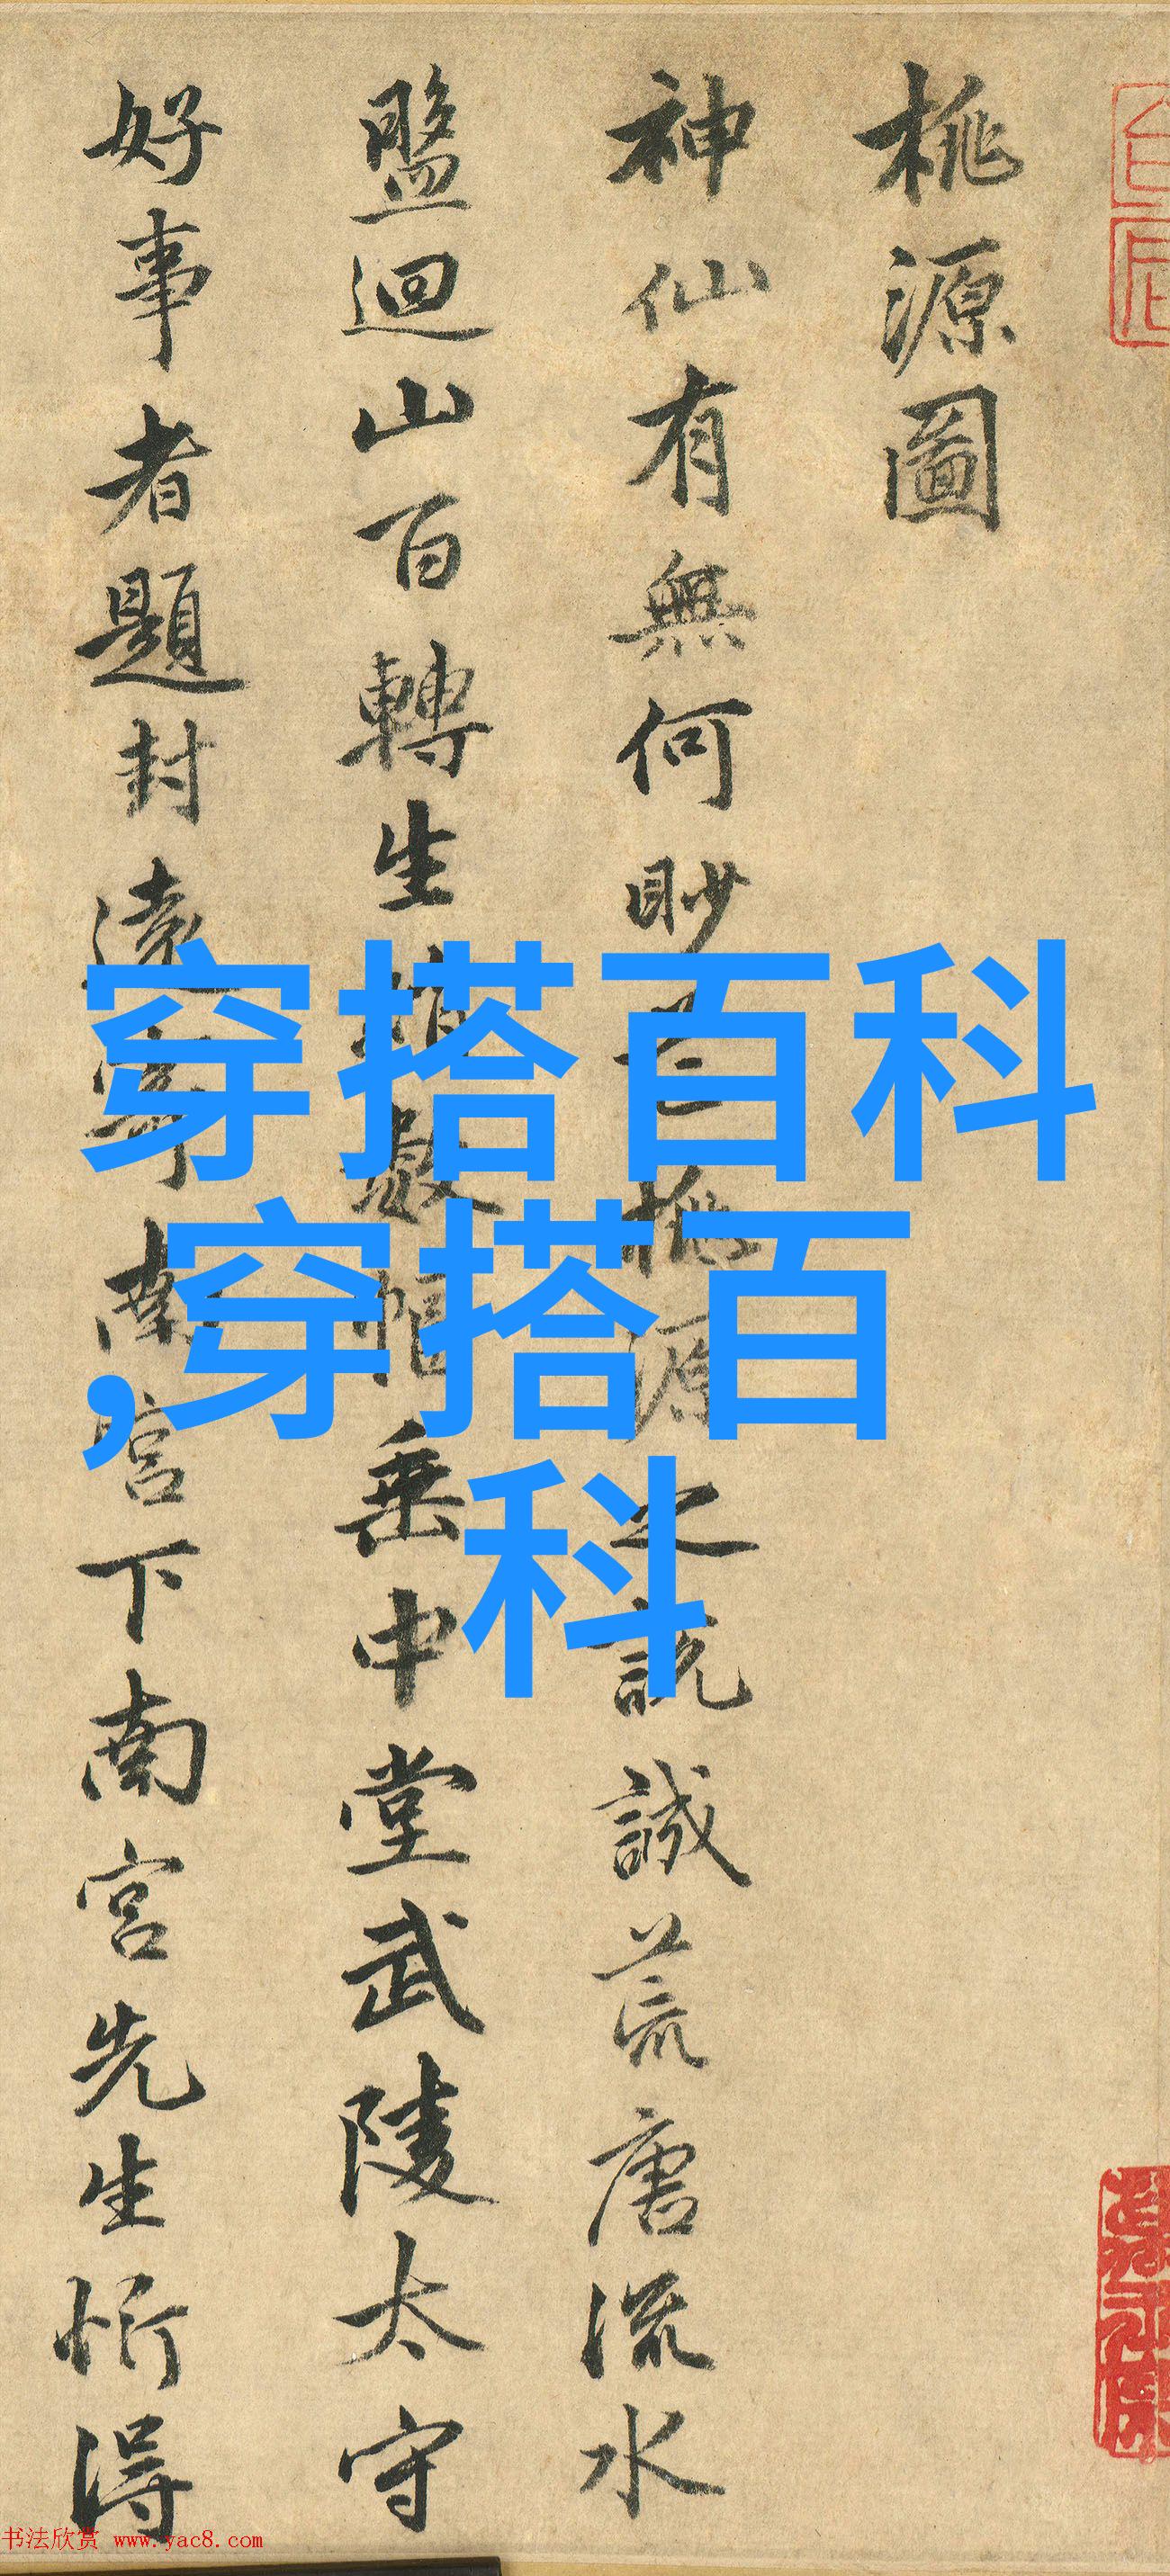 桃源圖
神仙有無何眇芒桃源之說誠荒唐流水
盤迴山百轉生綃數幅垂中堂武陵太守
好事者題封遠寄南宮下南宮先生忻得
穿搭百科
,穿搭百
科
书法欣赏 www.yac8.com